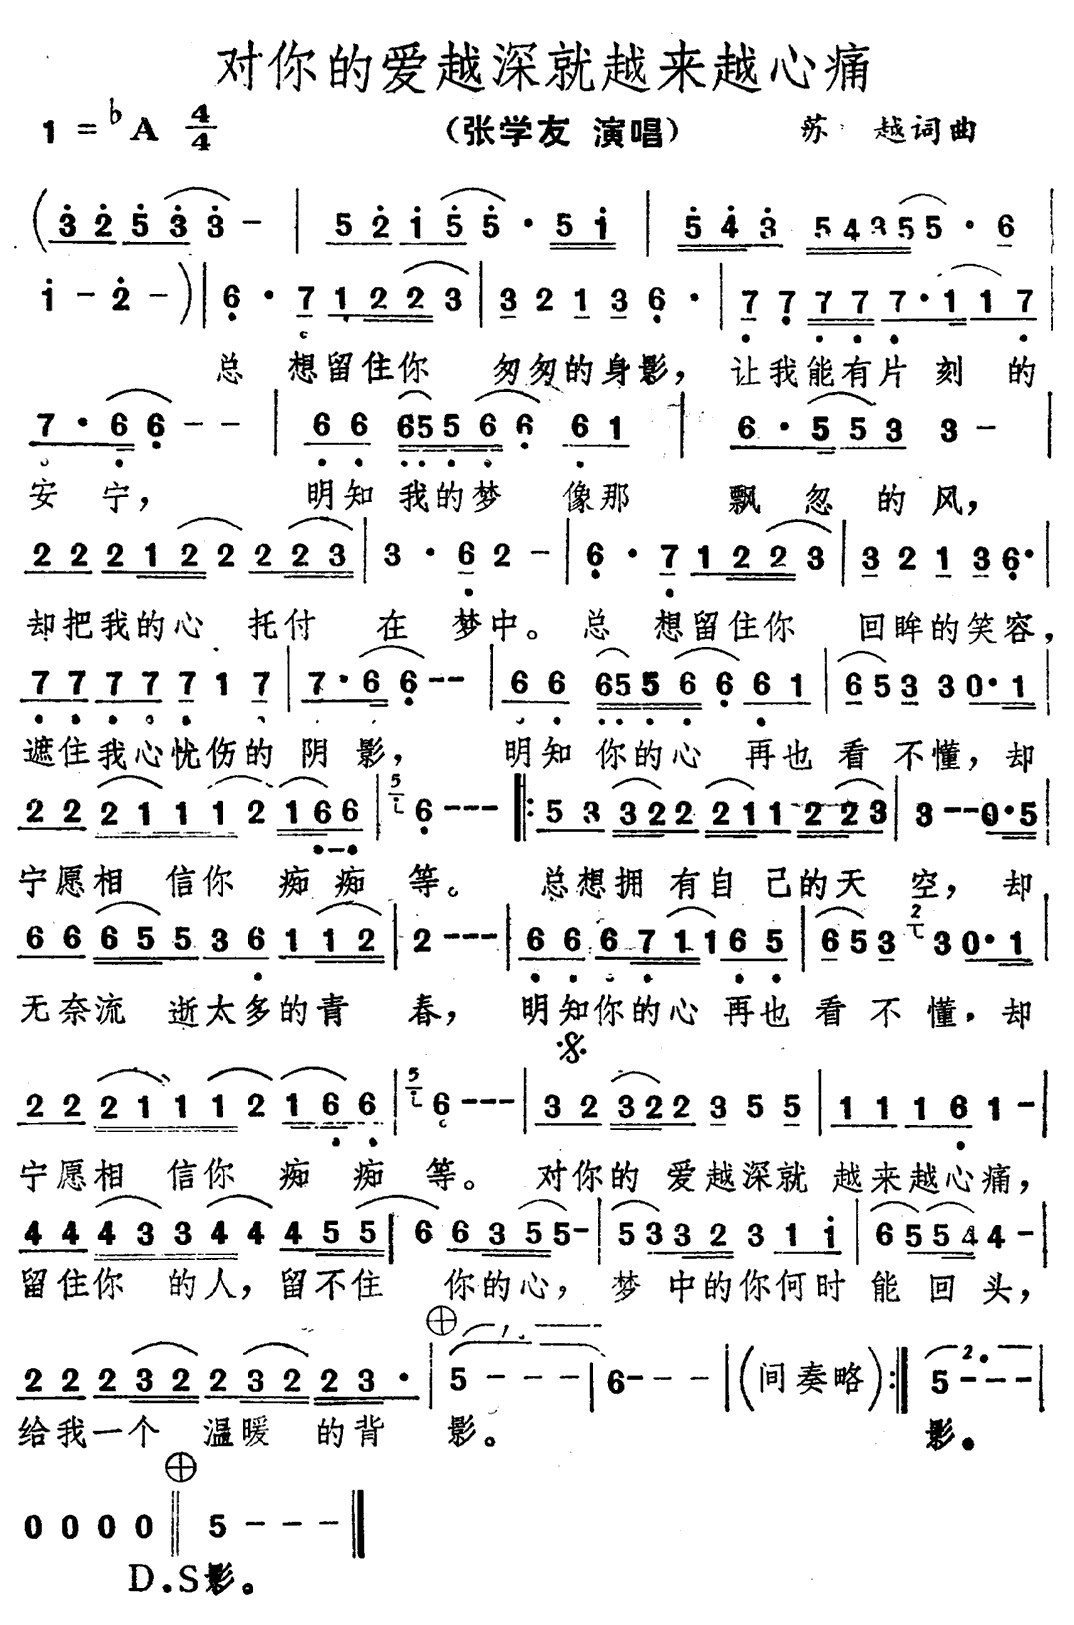 对你的爱越深就越来越心痛
1 = ♭A 4/4 （张学友 演唱） 苏 越词曲
(3 2 5 3 3 – | 5 2 1 5 5 · 5 1 | 5 4 3 5 4 3 5 5 · 6
1 – 2 – ) | 6 · 7 1 2 2 3 | 3 2 1 3 6 · | 7 7 7 7 7 · 1 1 7 |
总 想留住你 匆匆的身影，让我能有片 刻 的
7 · 6 6 – – | 6 6 6 5 5 6 6 6 1 | 6 · 5 5 3 3 – |
安 宁， 明知 我的梦 像那 飘 忽 的风，
2 2 2 1 2 2 2 2 3 | 3 · 6 2 – | 6 · 7 1 2 2 3 | 3 2 1 3 6 · |
却把我的心 托付 在 梦中。总 想留住你 回眸的笑容，
7 7 7 7 7 1 7 | 7 · 6 6 – – | 6 6 6 5 5 6 6 6 1 | 6 5 3 3 0 · 1 |
遮住我心忧伤的 阴 影， 明知 你的心 再也 看 不懂，却
2 2 2 1 1 1 2 1 6 6 | 5 6 – – – |: 5 3 3 2 2 2 1 1 2 2 3 | 3 – – 0 · 5 |
宁愿相 信你 痴 痴 等。 总想拥 有自 己的天 空，却
6 6 6 5 5 3 6 1 1 2 | 2 – – – | 6 6 6 7 1 1 6 5 | 6 5 3 2 3 0 · 1 |
无奈流 逝太多的青 春， 明知你的心 再也 看 不 懂，却
𝄋
2 2 2 1 1 1 2 1 6 6 | 5 6 – – – | 3 2 3 2 2 3 5 5 | 1 1 1 6 1 – |
宁愿相 信你 痴 痴 等。 对你的 爱越深就 越来越心痛，
4 4 4 3 3 4 4 4 5 5 | 6 6 3 5 5 – | 5 3 3 2 3 1 1 | 6 5 5 4 4 – |
留住你 的人，留不住 你的心， 梦 中的你何时 能 回头，
2 2 2 3 2 2 3 2 2 3 · | ⊕ 1. 5 – – – | 6 – – – | (间奏略) :| 2. 5 – – – |
给我一个 温暖 的背 影。 影。
⊕
0 0 0 0 ‖ 5 – – – ‖
D.S影。